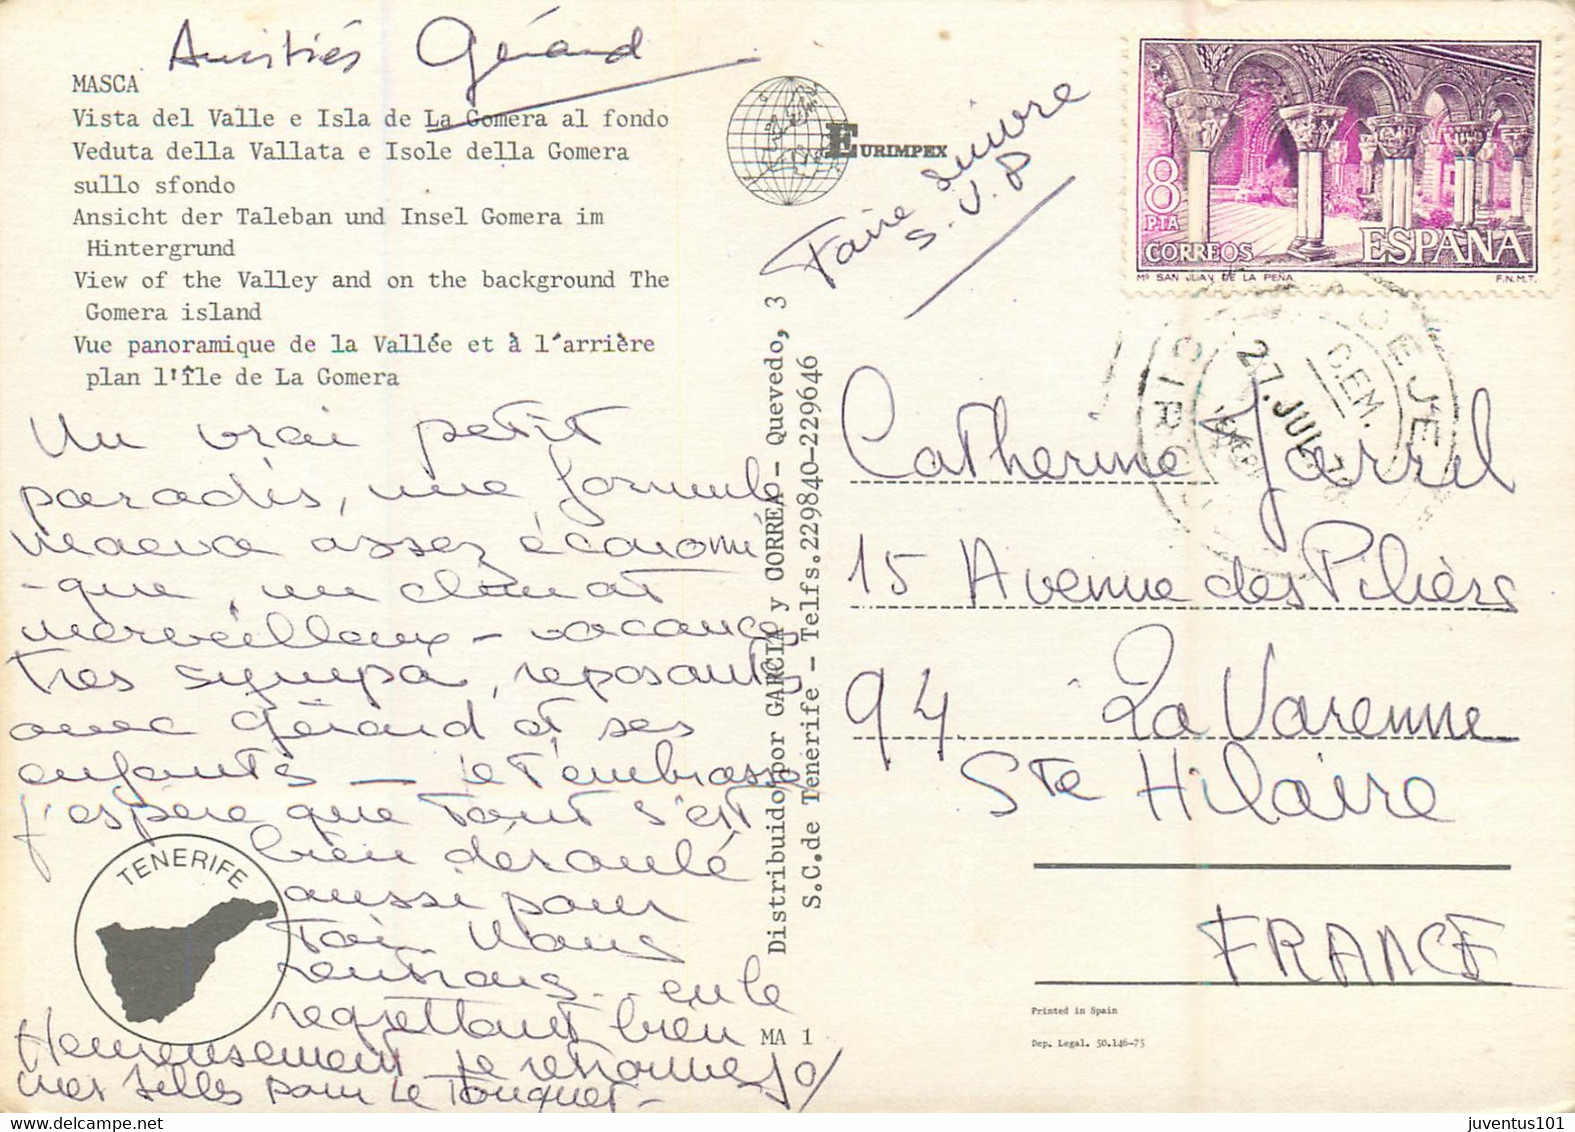 Amitiés Gérard
MASCA
Vista del Valle e Isla de La Gomera al fondo
Veduta della Vallata e Isole della Gomera
sullo sfondo
Ansicht der Taleban und Insel Gomera im
Hintergrund
View of the Valley and on the background The
Gomera island
Vue panoramique de la Vallée et à l'arrière
plan l'île de La Gomera
Un vrai petit
paradis, une formule
maeva assez économi
-que, un climat
merveilleux - vacances
tres sympa, reposantes
avec Gérard et ses
enfants - je t'embrasse
j'espère que tout s'est
bien déroulé
aussi pour
toi. Nous
rentrons.. en le
regrettant bien
Heureusement je retrouve
mes filles pour Le Touquet -
TENERIFE
MA 1
EURIMPEX
Distribuido por GARCIA y CORREA - Quevedo, 3
S.C.de Tenerife - Telfs.229840-229646
Faire suivre
S.V.P
8
PTA
CORREOS
ESPAÑA
Mº SAN JUAN DE LA PEÑA
F.N.M.T.
27.JUL.
Catherine
15 Avenue des Piliers
94 La Varenne
Ste Hilaire
FRANCE
Printed in Spain
Dep. Legal. 50.146-75
juventus101